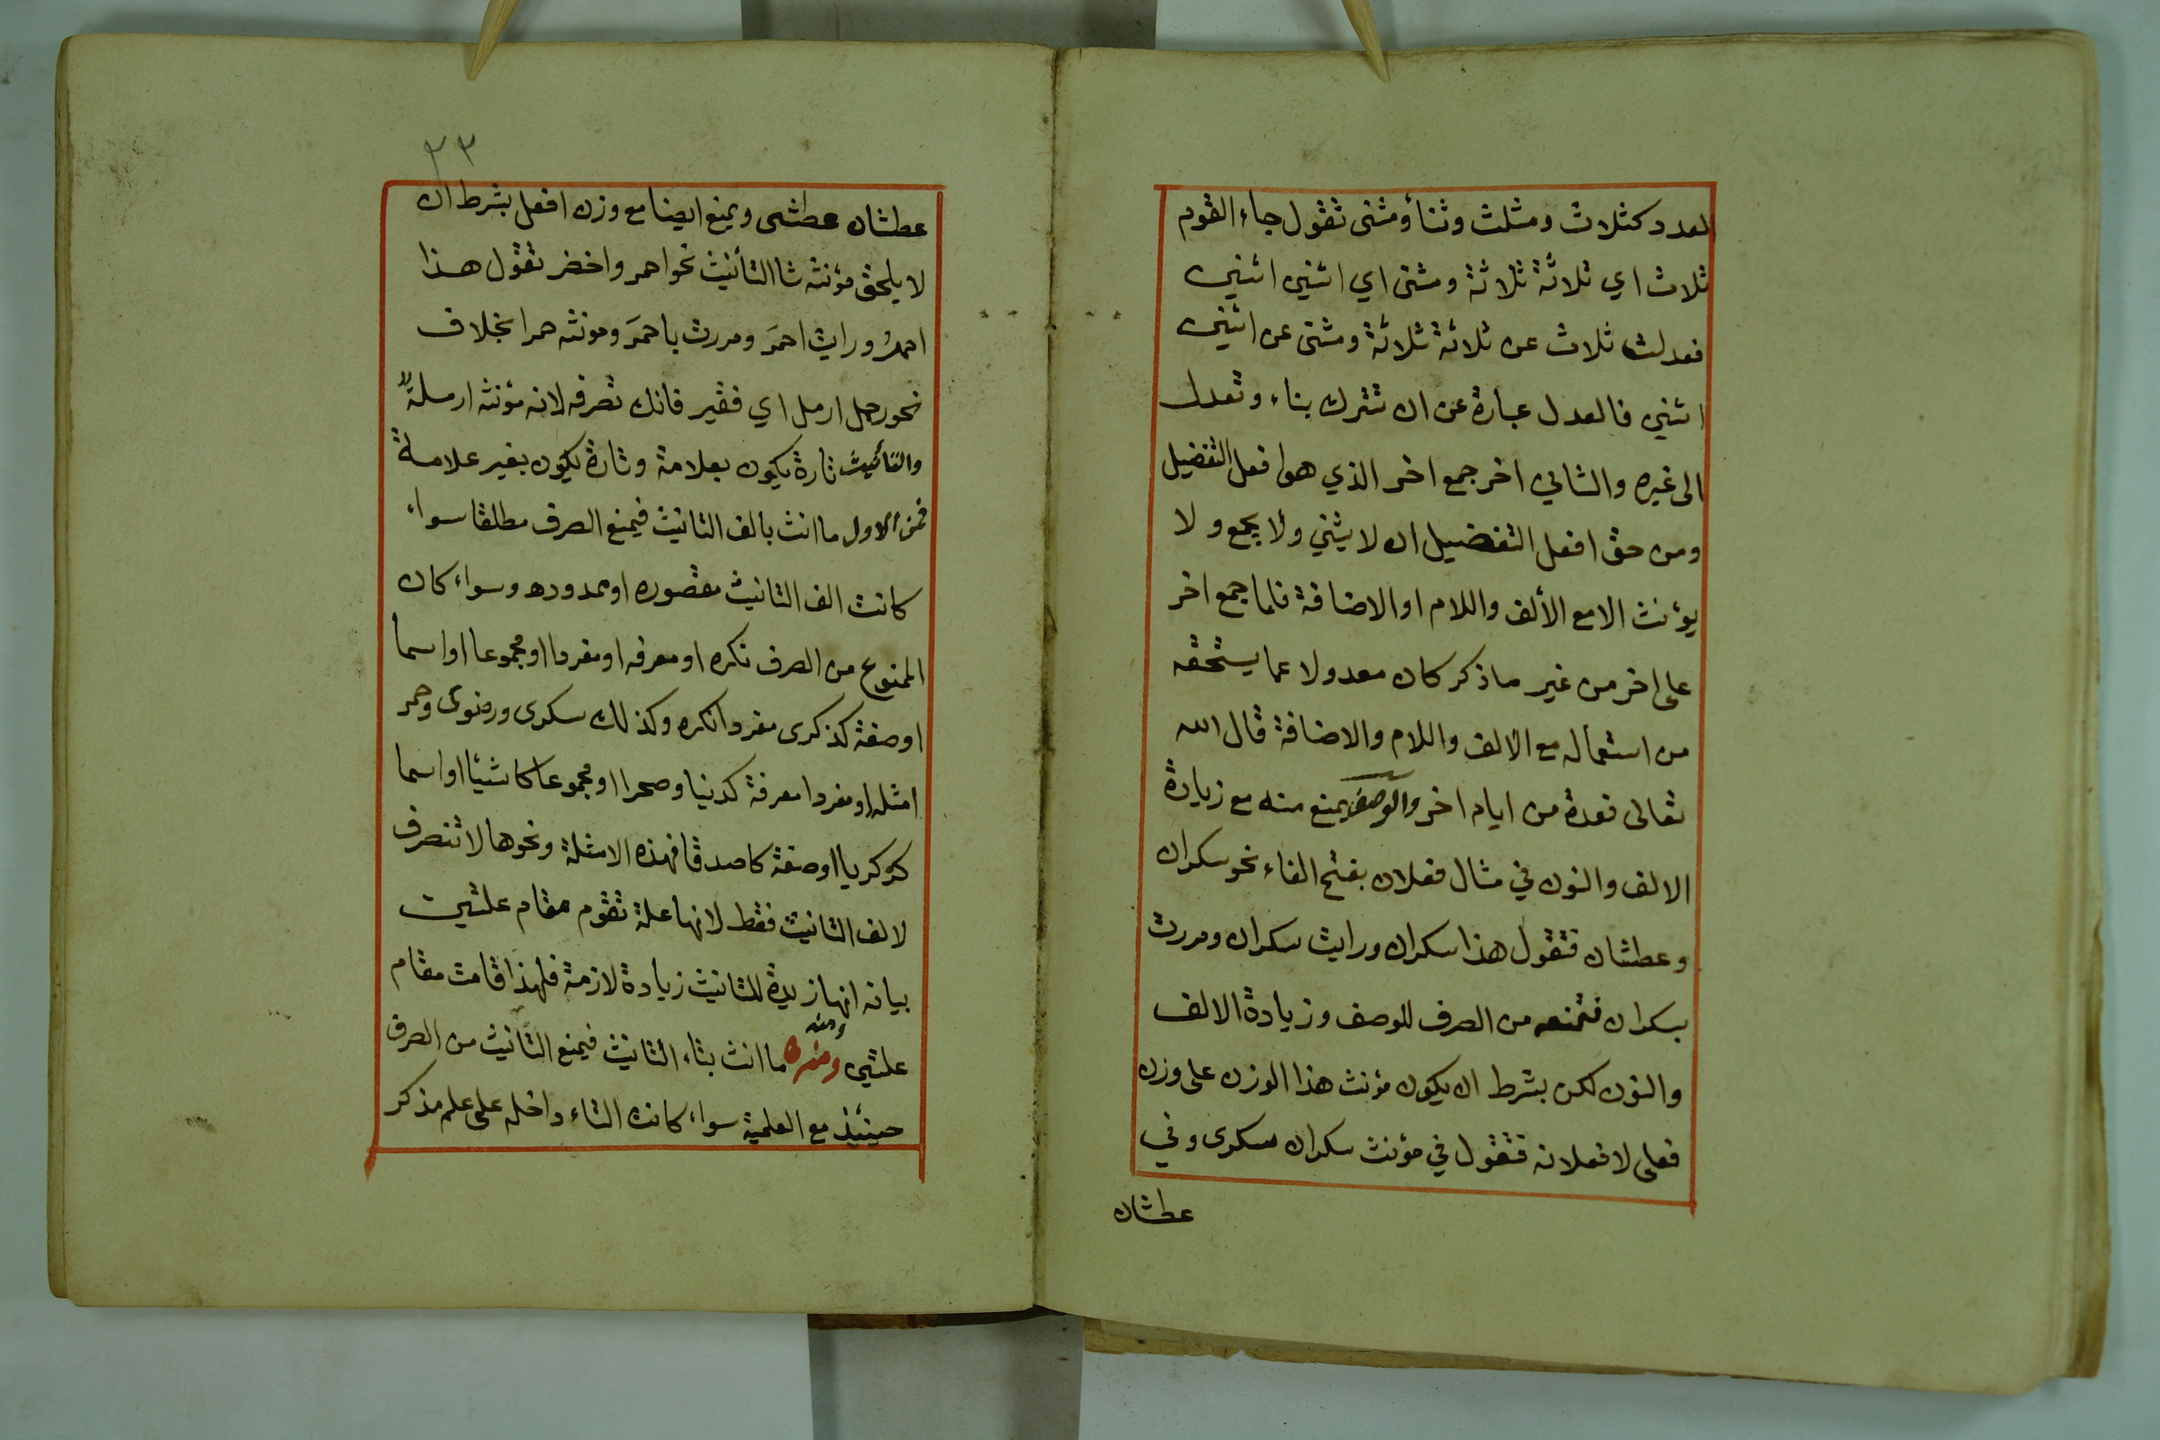 العدد كثلاث ومثلث وثناء ومثنى تقول جاء القوم
ثلاث اي ثلاثة ثلاثة ومثنى اي اثنين اثنين
فعدلت ثلاث عن ثلاثة ثلاثة ومثنى عن اثنين
اثنين فالعدل عبارة عن ان تترك بناء وتعدل
الى غيره والثاني اخر جمع اخر الذي هو افعل التفضيل
ومن حق افعل التفضيل ان لا يثني ولا يجمع ولا
يؤنث الا مع الألف واللام او الاضافة فلما جمع اخر
على اخر من غير ما ذكر كان معدولا عما يستحقه
من استعماله مع الالف واللام والاضافة قال الله
تعالى فعدة من ايام اخر والوصف يمنع منه مع زيادة
الالف والنون في مثال فعلان بفتح الفاء نحو سكران
وعطشان فتقول هذا سكران ورايت سكران ومررت
بسكران فتمنعه من الصرف للوصف وزيادة الالف
والنون لكن بشرط ان يكون مؤنث هذا الوزن على وزن
فعلى لا فعلانه فتقول في مؤنث سكران سكرى وفي
عطشان
٣٣
عطشان عطشى ويمنع ايضا مع وزن افعل بشرط ان
لا يلحق مؤنثه تا التأنيث نحو احمر واخضر تقول هذا
احمرُ ورايت احمرَ ومررت باحمرَ ومونثه حمرا بخلاف
نحو رجل ارمل اي فقير فانك تصرفه لانه مؤنثه ارملةٌ
والتأنيث تارة يكون بعلامة وتارة يكون بغير علامة
فمن الاول ما انث بالف التانيث فيمنع الصرف مطلقا سواء
كانت الف التانيث مقصوره او ممدوده وسواء كان
الممنوع من الصرف نكره او معرفه او مفردا او مجموعا او اسما
او صفة كذكرى مفردا نكره وكذلك سكرى ورضوى وحمر
امثله او مفردا معرفة كدنيا وصحرا او مجموعا كاشيا او اسما
كزكريا او صفة كاصدقا فهذه الامثلة ونحوها لا تنصرف
لالف التانيث فقط لانها علة تقوم مقام علتين
بيانه انها زيدة للتانيث زيادة لازمة فلهذا قامت مقام
علتين ومنه ما انث بتاء التانيث فيمنع التانيث من الصرف
ومنه
حينئذ مع العلمية سواء كانت التاء داخله على علم مذكر